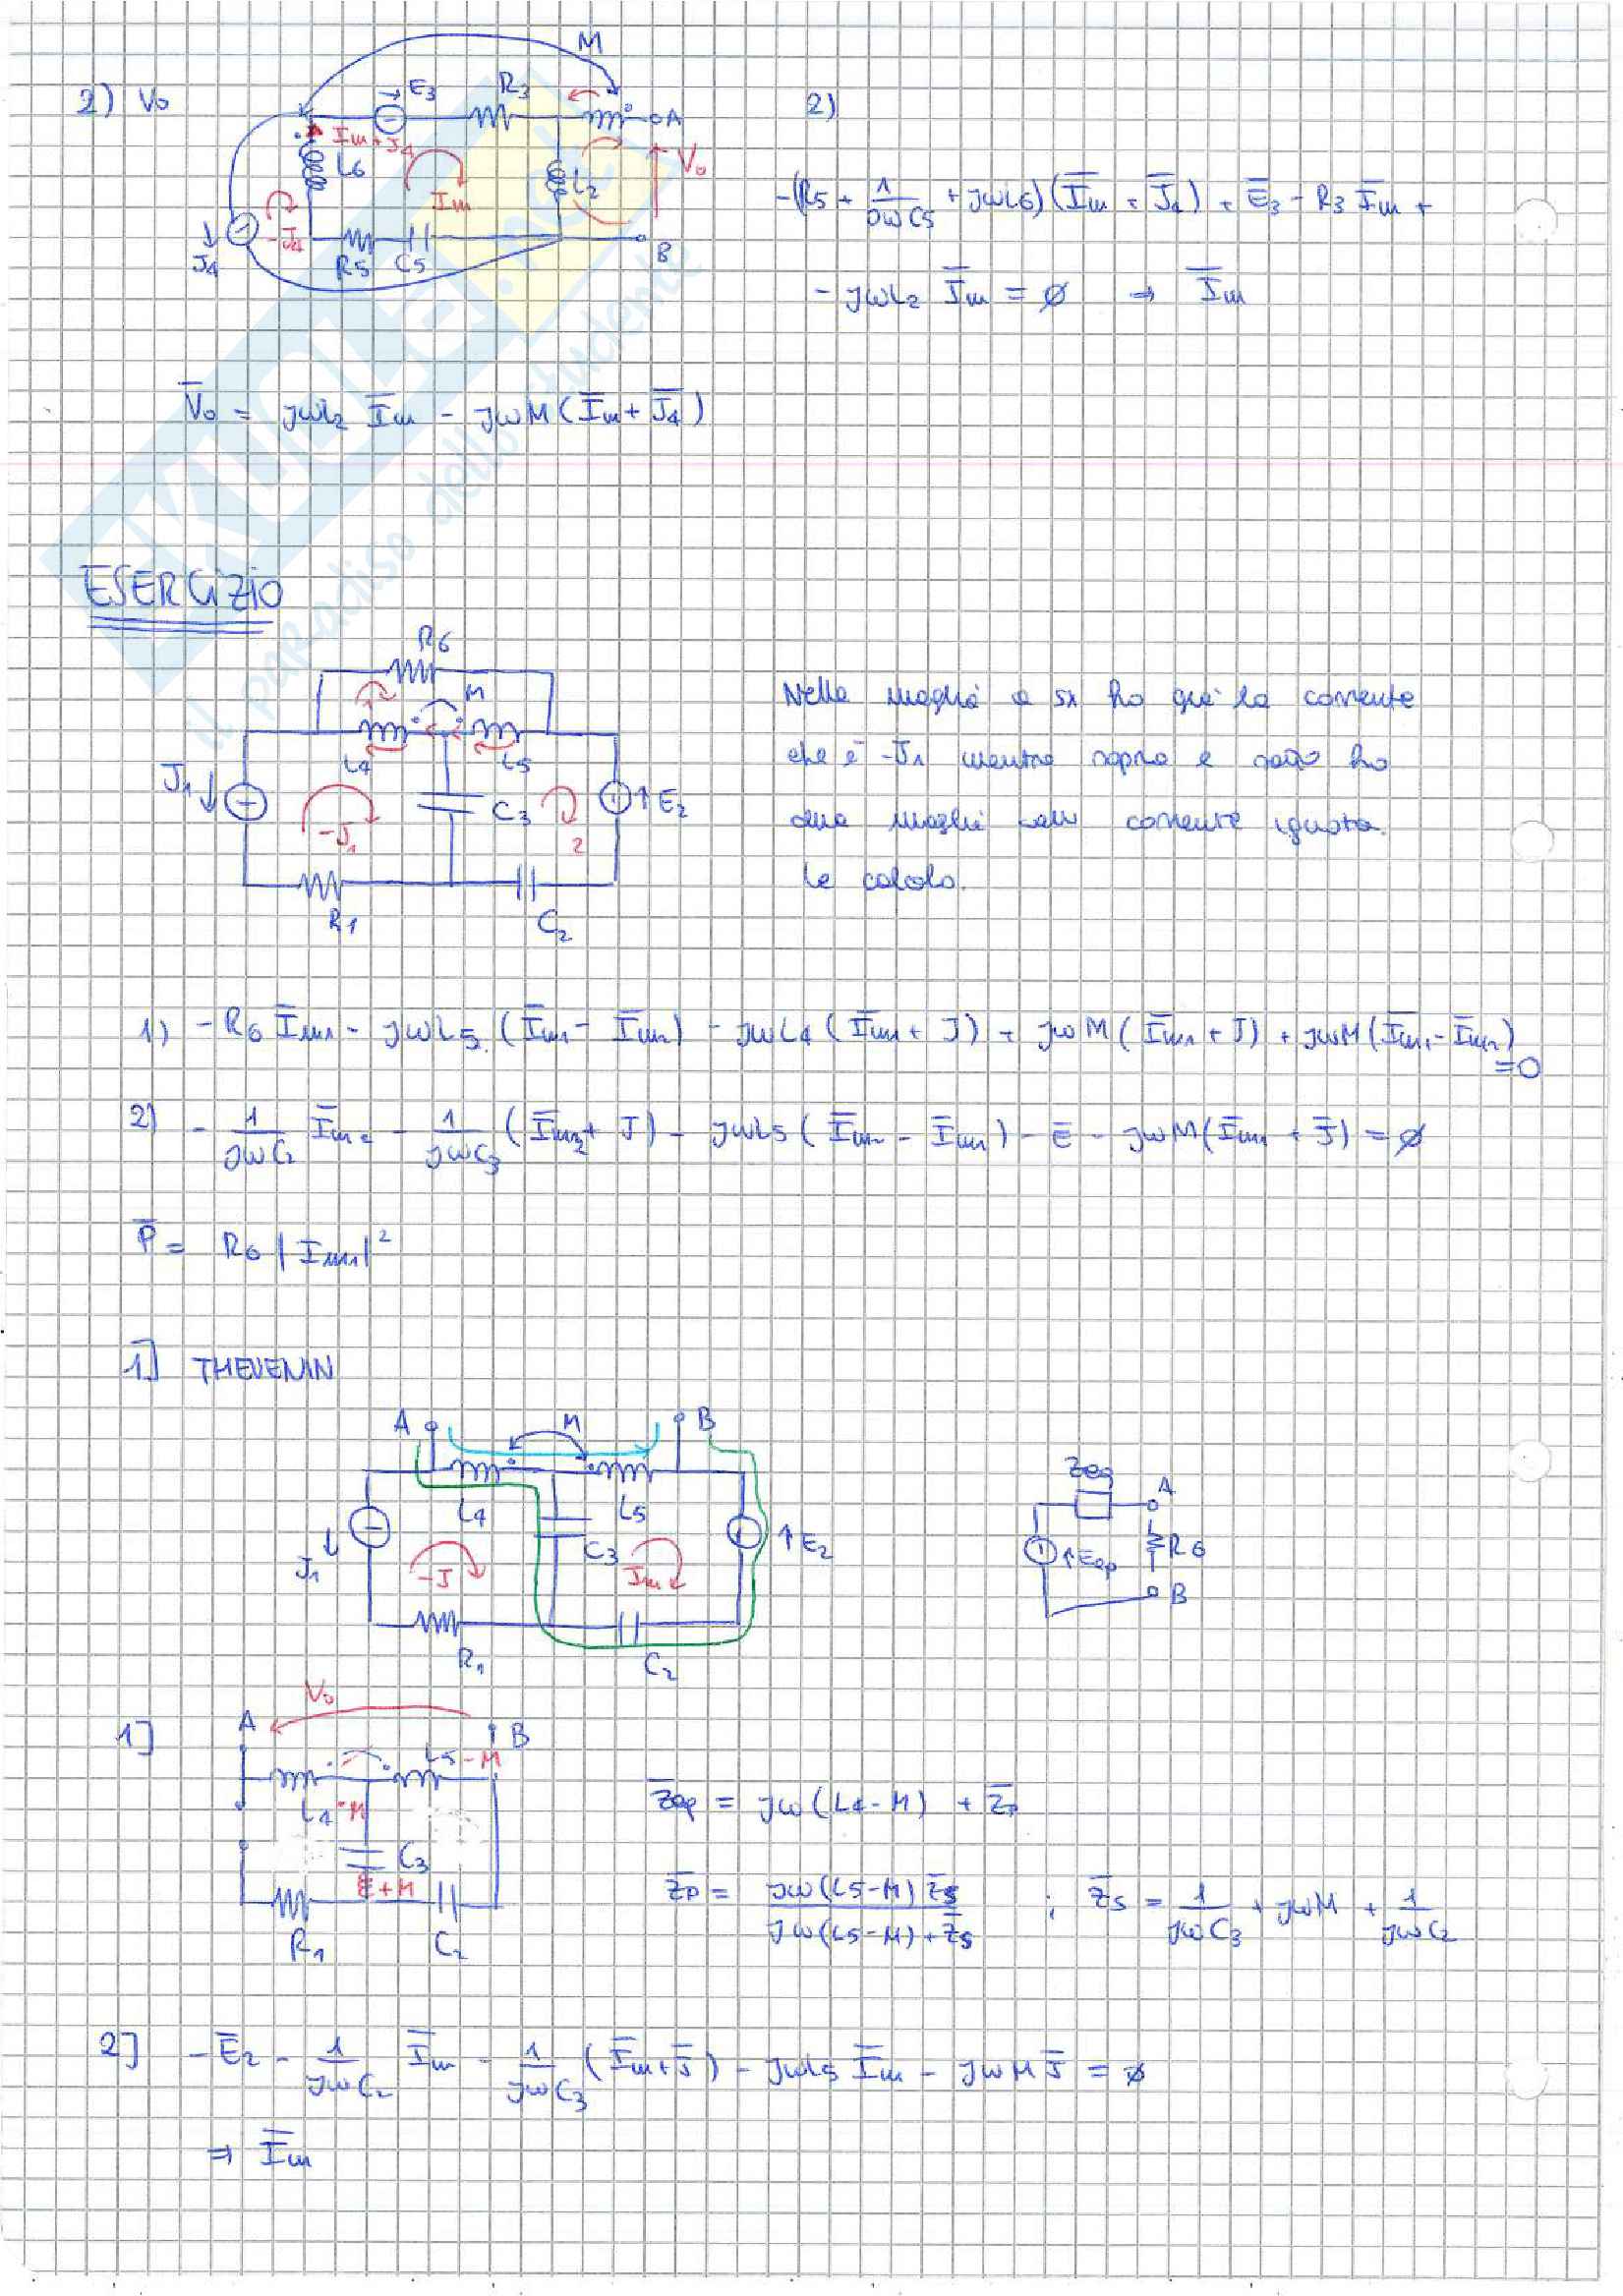 2) V₀
M
E₃
R₃
A
Im+J₄
L₆
Im
L₂
V₀
J₄
-J₄
R₅ C₅
B
2)
-(R₅ + 1/jωC₅ + jωL6)(Īm + J̄₄) + Ē₃ - R₃ Īm +
- jωL₂ Īm = ∅ → Īm
V̄₀ = jωL₂ Īm - jωM(Īm + J̄₄)
ESERCIZIO
R₆
M
L₄
L₅
J₁
-J₁
C₃
2
E₂
R₁
C₂
Nella maglia a sx ho già la corrente
che è -J₁ mentre sopra e sotto ho
due maglie con corrente ignota.
Le calcolo.
1) -R₆ Īm₁ - jωL₅ (Īm₁ - Īm₂) - jωL₄ (Īm₁ + J) + jωM (Īm₁ + J) + jωM (Īm₁ - Īm₂) =0
2) - 1/jωC₂ Īm₂ - 1/jωC₃ (Īm₂ + J) - jωL5 (Īm₂ - Īm₁) - Ē - jωM(Īm₁ + J̄) = ∅
P̄ = R₆ |Im₁|²
1] THEVENIN
A
M
B
L₄
L₅
J₁
-J
C₃
Im
E₂
R₁
C₂
Zeq
A
Eeq
R6
B
1]
V₀
A
B
L₅-M
L₄-M
C₃
+M
R₁
C₂
Z̄eq = jω(L4-M) + Z̄p
Z̄p = jω(L5-M) Z̄s / jω(L5-M) + Z̄s ; Z̄s = 1/jωC₃ + jωM + 1/jωC₂
2] -Ē₂ - 1/jωC₂ Īm - 1/jωC₃ (Īm+J̄) - jωL₅ Īm - jωM J̄ = ∅
⇒ Īm
il paradiso dello studente